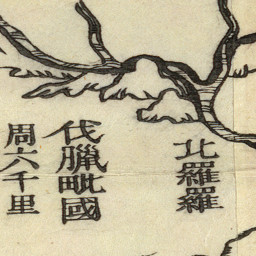 北羅羅
伐臘毗國
周六千里